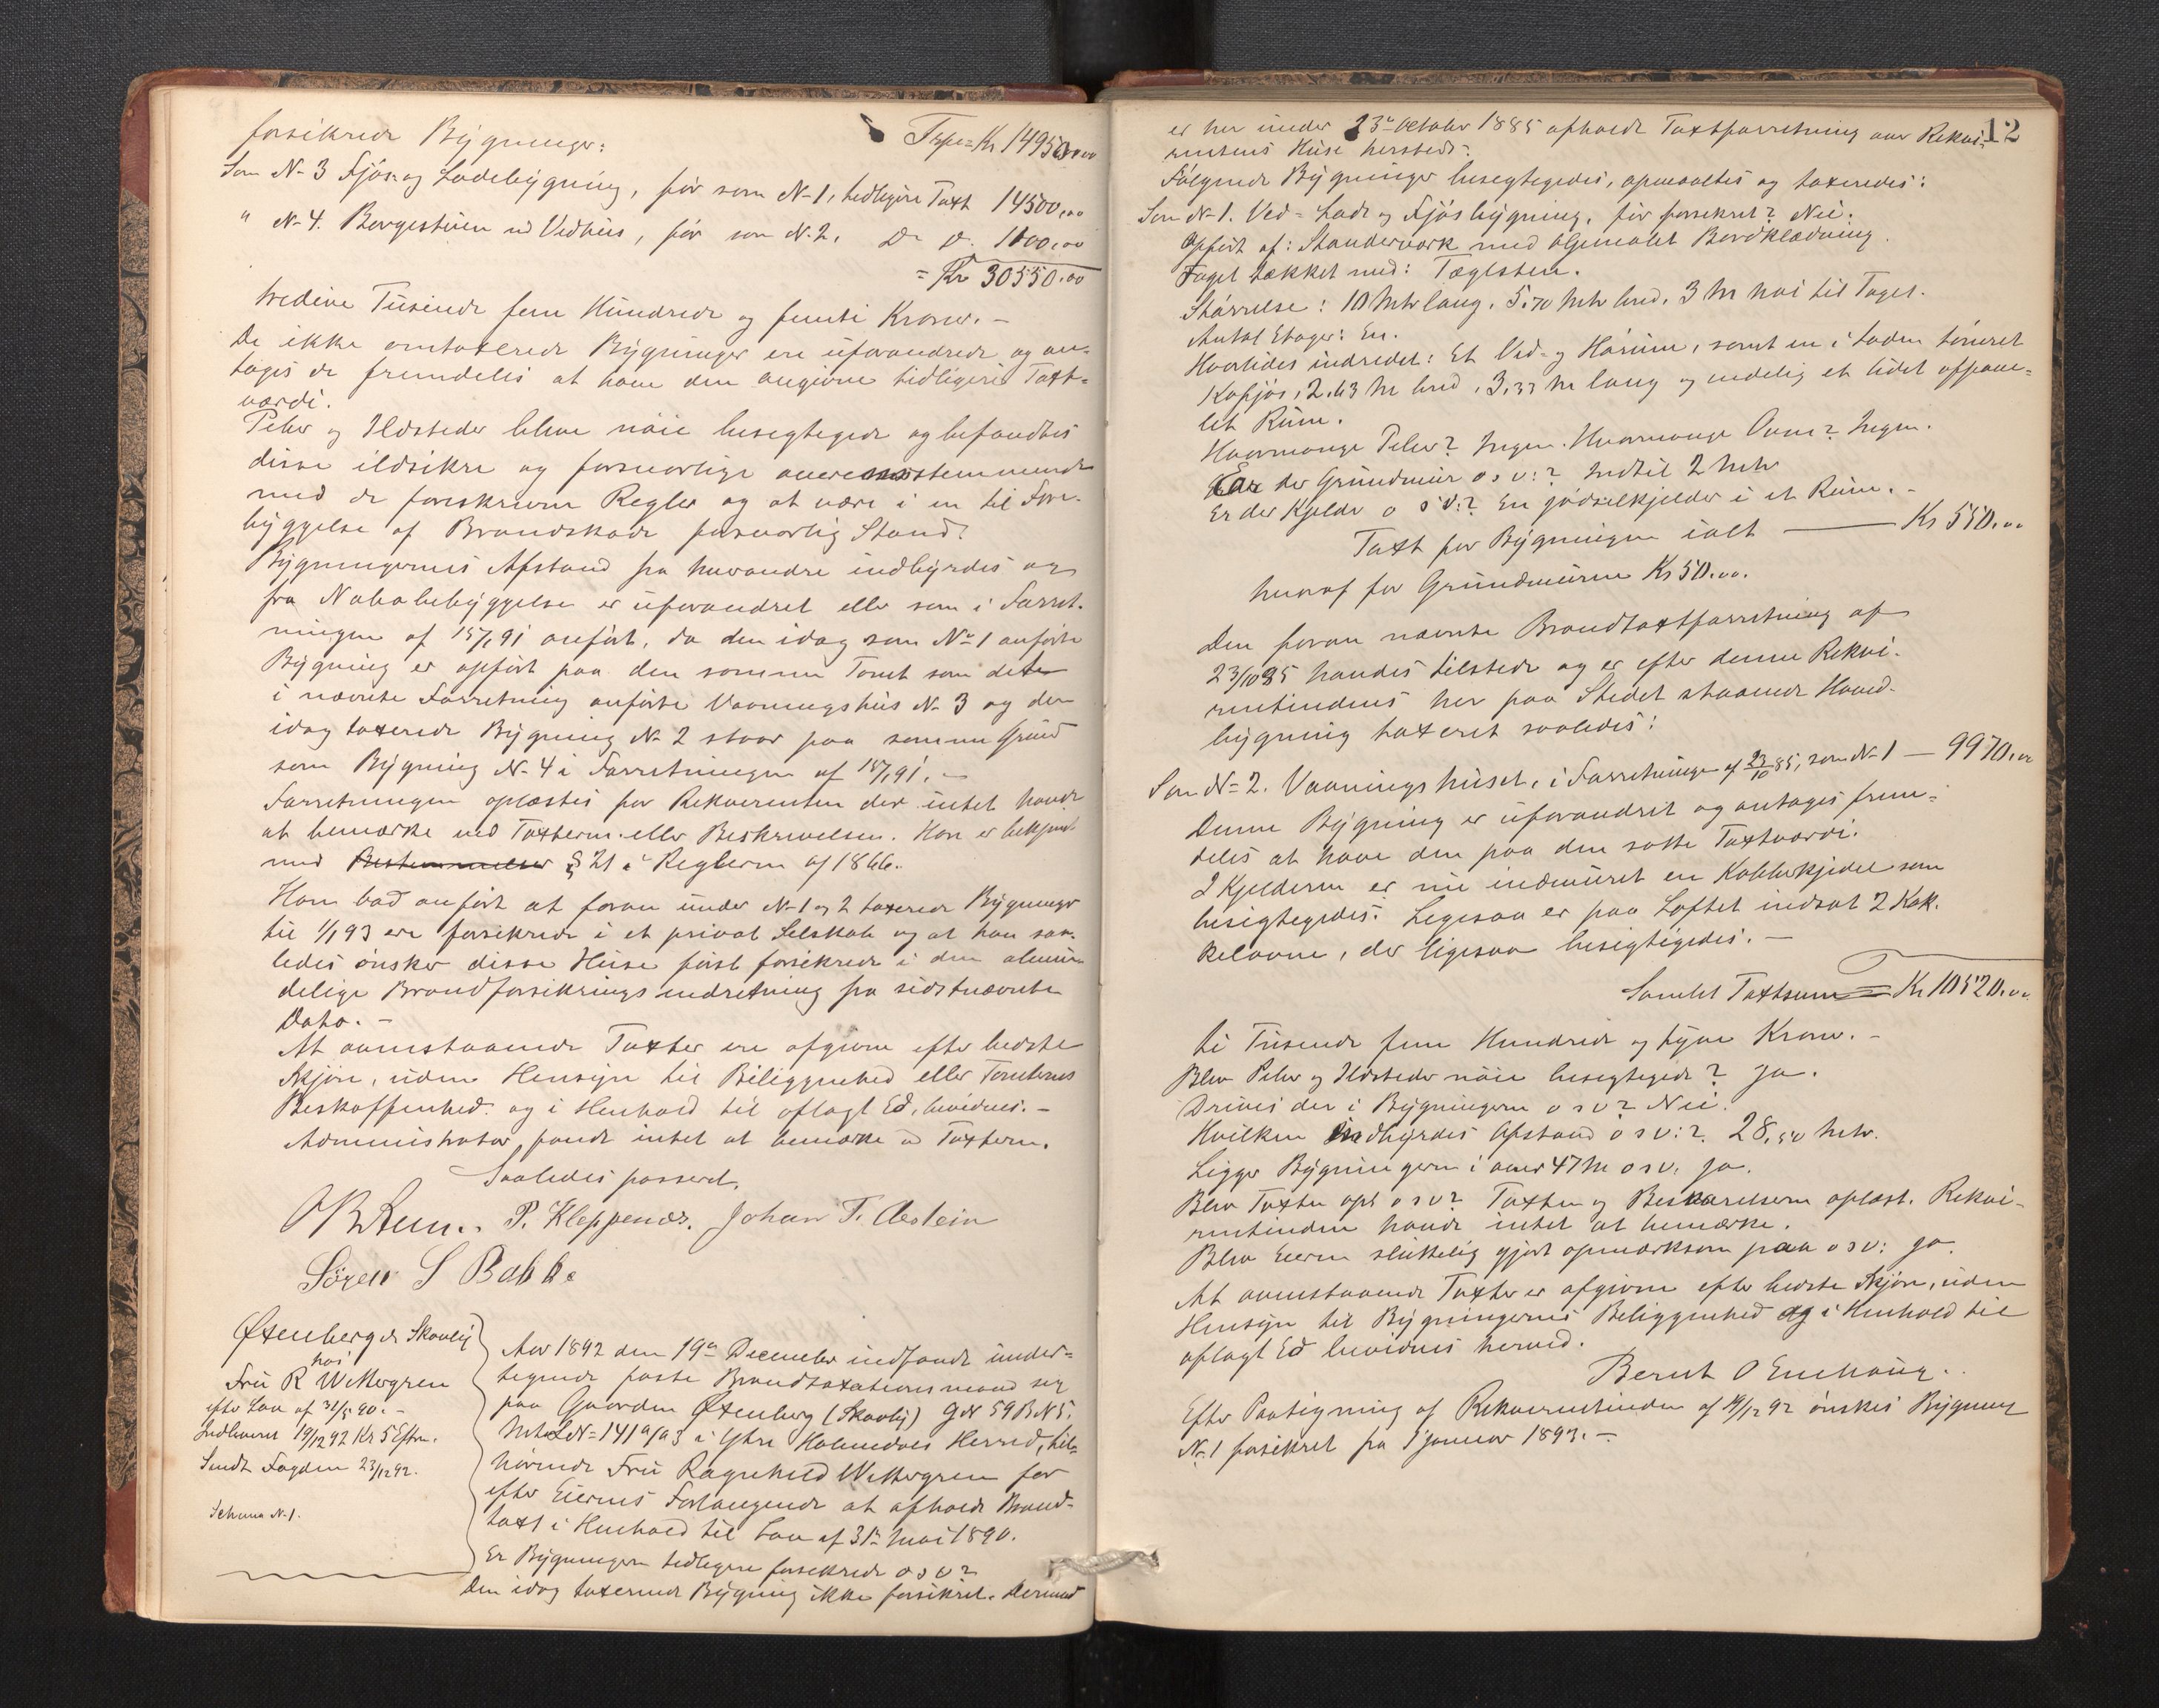 forsikrede Bygninger: Trspt = Kr 14950.00
Som N- 3 Fjös- og Ladebygning, för som N- 1, tidligere Taxt 14500,00
" N- 4. Borgestuen m Vedhus, för som N. 2, Do Do. 1100,00
= Kr 30550.00
tredive Tusinde fem Hundrede og femti Kroner. -
De ikke omtaxerede Bygninger ere uforandrede og an-
tages de fremdeles at have den angivne tidligere Taxt-
værdi.
Peber og Ildsteder bleve nöie besegtegede og befandtes
disse ildsikre og forsvarlige overensstemmende
med de foreskrevne Regler og at være i en til Fore-
byggelse af Brandskade forsvarlig Stand.
Bygningernes Afstand fra hverandre indbyrdes og
fra Nabobebyggelse er uforandret eller som i Forret-
ningen af 15/7 91 anfört, da den idag som No 1 anförte
Bygning er opfört paa den samme Tomt som det
i nævnte Forretning anförte Vaaningshus N- 3 og den
idag taxerede Bygning N- 2 staar paa samme Grund
som Bygning N- 4 i Forretningen af 15/7 91. -
Forretningen oplæstes for Rekvirenten der intet havde
at bemærke ved Taxterne eller Beskrivelsen. Han er bekjendt
med Bestemmelser § 21 i Reglerne af 1866.
Han bad anfört at foran under N- 1 og 2 taxerede Bygninger
til 1/1 93 ere forsikrede i et privat Selskab og at han saa-
ledes önsker disse Huse först forsikrede i den almin-
delige Brandforsikringsindretning fra sidstnævnte
Dato. -
At ovenstaaende Taxter ere afgivne efter bedste
Skjön, uden Hensyn til Beliggenhed eller Tomternes
Beskaffenhed og i Henhold til aflagt Ed, bevidnes. -
Administrator fandt intet at bemærke v Taxterne.
Saaledes passeret.
P. Kleppenæs. Johan T. Aastein
Sören S Bakke
Øxenberg ds Skovlij
hos
Fru R Wettergren
efter Lov af 31/5 90. -
Indleveret 19/12 92 Kr 5 Eftm.
Sendt Fogden 23/12 92.
Schema N- 1.
Aar 1892 den 19de December indfandt under-
tegnede faste Brandtaxationsmand sig
paa Gaarden Øxenberg (Skovlij) GN 59 BN 5.
Mtr LN = 141 a/a 3 i Ytre Holmedals Herred, til-
hörende Fru Ragnhild Wettergren for
efter Eierens Forlangende at afholde Brand-
taxt i Henhold til Lov af 31te Mai 1890.
Er Bygningen tidligere forsikrede o s v?
Den idag taxerende Bygning ikke forsikret. Derimod
12
er her under 23de Oktober 1885 afholdt Taxtforretning over Rekvi-
rentens Huse hersteds.
Fölgende Bygninger besegtegedes, opmaaltes og taxeredes:
Som N- 1. Ved- Lade og Fjösbygning, för forsikret? Nei.
Opfört af: Standerværk med oljemalet Bordklædning.
Taget tækket med: Tæglsten.
Störrelse: 10 Mtr lang. 5,70 Mtr bred, 3 M höi til Taget.
Antal Etager: En.
Hvorledes indredet: Et Ved- og Hörum, samt en i Laden tömret
Kofjös, 2,63 M bred, 3,33 M lang og endelig et lidet afpane-
let Rum.
Hvormange Peber? Ingen. Hvormange Ovne? Ingen.
Er der Grundmur o s v:? Indtil 2 Mtr
Er der Kjelder o s v:? En gjödselkjelder i et Rum. -
Taxt for Bygningen ialt — Kr 550,00
hvoraf for Grundmuren Kr 50.00.
Den foran nævnte Brandtaxtforretning af
23/10 85 havdes tilstede og er efter denne Rekvi-
rentindens her paa Stedet staaende Hoved-
bygning taxeret saaledes:
Som N= 2. Vaaningshuset, i Forretningen af 23/10 85, som N- 1 — 9970,00
Denne Bygning er uforandret og antages frem-
deles at have den paa den satte Taxtværdi.
I Kjelderen er nu indmuret en Kobberkjedel som
besigtegedes. Ligesaa er paa Loftet indsat 2 Kak-
kelovne, der ligesaa besigtigedes. -
Samlet Taxtsum = Kr 10520.00
ti Tusende fem Hundrede og tyve Kroner. -
Blev Peber og Ildsteder nöie besegtegede? Ja.
Drives der i Bygningerne o s v? Nei.
Hvilken indbyrdes Afstand o s v:? 28,50 Mtr.
Ligger Bygningerne i over 47 M o s v: Ja.
Blev Taxten opl o s v? Taxten og Beskrivelserne oplæst. Rekvi-
rentinden havde intet at bemærke.
Blev Eieren sluttelig gjort opmærksom paa o s v: Ja.
At ovenstaaende Taxter er afgivne efter bedste Skjön, uden
Hensyn til Bygningernes Beliggenhed og i Henhold til
aflagt Ed bevidnes herved.
Bernt O Enehaug.
Efter Paategning af Rekvirentinden af 19/12 92 önskes Bygning
N- 1 forsikret fra 1 Januar 1893. -